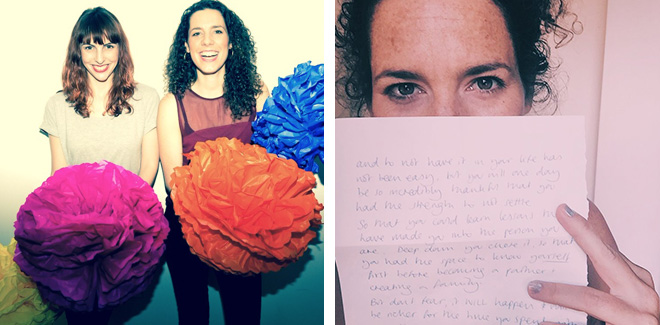 and to not have it in your life has
not been easy. But you will one day
be so incredibly thankful that you
had the strength to not settle.
So that you could learn lessons that
have made you into the person you
are. Deep down you chose it, so that
you had the space to know yourself
first before becoming a partner &
creating a family.
But don't fear, it will happen &
be richer for the time you spent